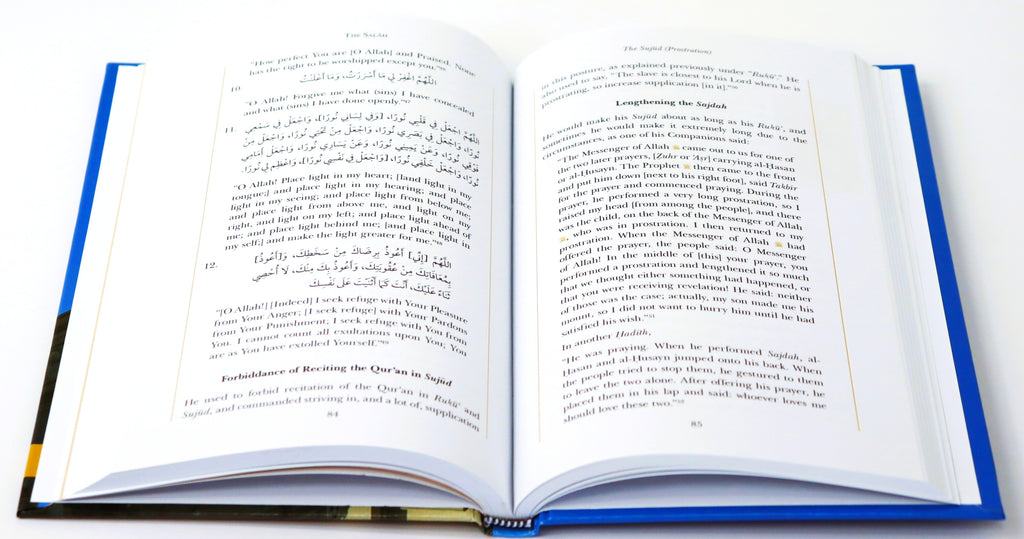 THE SALĀH
"How perfect You are [O Allah] and Praised. None
has the right to be worshipped except you."⁹⁶
10. اللَّهُمَّ اغْفِرْ لِي مَا أَسْرَرْتُ، وَمَا أَعْلَنْتُ
"O Allah! Forgive me what (sins) I have concealed
and what (sins) I have done openly."⁹⁷
11. اللَّهُمَّ اجْعَلْ فِي قَلْبِي نُورًا، [وَفِي لِسَانِي نُورًا]، وَاجْعَلْ فِي سَمْعِي
نُورًا، وَاجْعَلْ فِي بَصَرِي نُورًا، وَاجْعَلْ مِنْ تَحْتِي نُورًا، وَاجْعَلْ مِنْ
فَوْقِي نُورًا، وَعَنْ يَمِينِي نُورًا، وَعَنْ يَسَارِي نُورًا، وَاجْعَلْ أَمَامِي
نُورًا، وَاجْعَلْ خَلْفِي نُورًا، [وَاجْعَلْ فِي نَفْسِي نُورًا]، وَاعْظِمْ لِي نُورًا.
"O Allah! Place light in my heart; [land light in my
tongue;] and place light in my hearing; and place
light in my seeing; and place light from below me;
and place light from above me, and light on my
right, and light on my left; and place light ahead of
me; and place light behind me; [and place light in
my self;] and make the light greater for me."⁹⁸
12. اللَّهُمَّ [إِنِّي] أَعُوذُ بِرِضَاكَ مِنْ سَخَطِكَ، وَ[أَعُوذُ]
بِمُعَافَاتِكَ مِنْ عُقُوبَتِكَ، وَأَعُوذُ بِكَ مِنْكَ، لَا أُحْصِي
ثَنَاءً عَلَيْكَ، أَنْتَ كَمَا أَثْنَيْتَ عَلَى نَفْسِكَ
"[O Allah!] [Indeed] I seek refuge with Your Pleasure
from Your Anger; [I seek refuge] with Your Pardons
from Your Punishment; I seek refuge with You from
You. I cannot count all exultations upon You; You
are as You have extolled Yourself."⁹⁹
Forbiddance of Reciting the Qur'an in Sujūd
He used to forbid recitation of the Qur'an in Rukū' and
Sujūd, and commanded striving in, and a lot of, supplication
84
The Sujūd (Prostration)
in this posture, as explained previously under "Rukū'." He
also used to say, "The slave is closest to his Lord when he is
prostrating, so increase supplication [in it]."
Lengthening the Sajdah
He would make his Sujūd about as long as his Rukū', and
sometimes he would make it extremely long due to the
circumstances, as one of his Companions said:
"The Messenger of Allah ﷺ came out to us for one of
the two later prayers, [Zuhr or 'Aṣr] carrying al-Ḥasan
or al-Ḥusayn. The Prophet ﷺ then came to the front
and put him down [next to his right foot], said Takbīr
for the prayer and commenced praying. During the
prayer, he performed a very long prostration, so I
raised my head [from among the people], and there
was the child, on the back of the Messenger of Allah
ﷺ, who was in prostration. I then returned to my
prostration. When the Messenger of Allah ﷺ had
offered the prayer, the people said: O Messenger
of Allah! In the middle of [this] your prayer, you
performed a prostration and lengthened it so much
that we thought either something had happened, or
that you were receiving revelation! He said: neither
of those was the case; actually, my son made me his
mount, so I did not want to hurry him until he had
satisfied his wish."
In another Hadith,
"He was praying. When he performed Sajdah, al-
Ḥasan and al-Ḥusayn jumped onto his back. When
the people tried to stop them, he gestured to them
to leave the two alone. After offering his prayer, he
placed them in his lap and said: whoever loves me
should love these two."
85